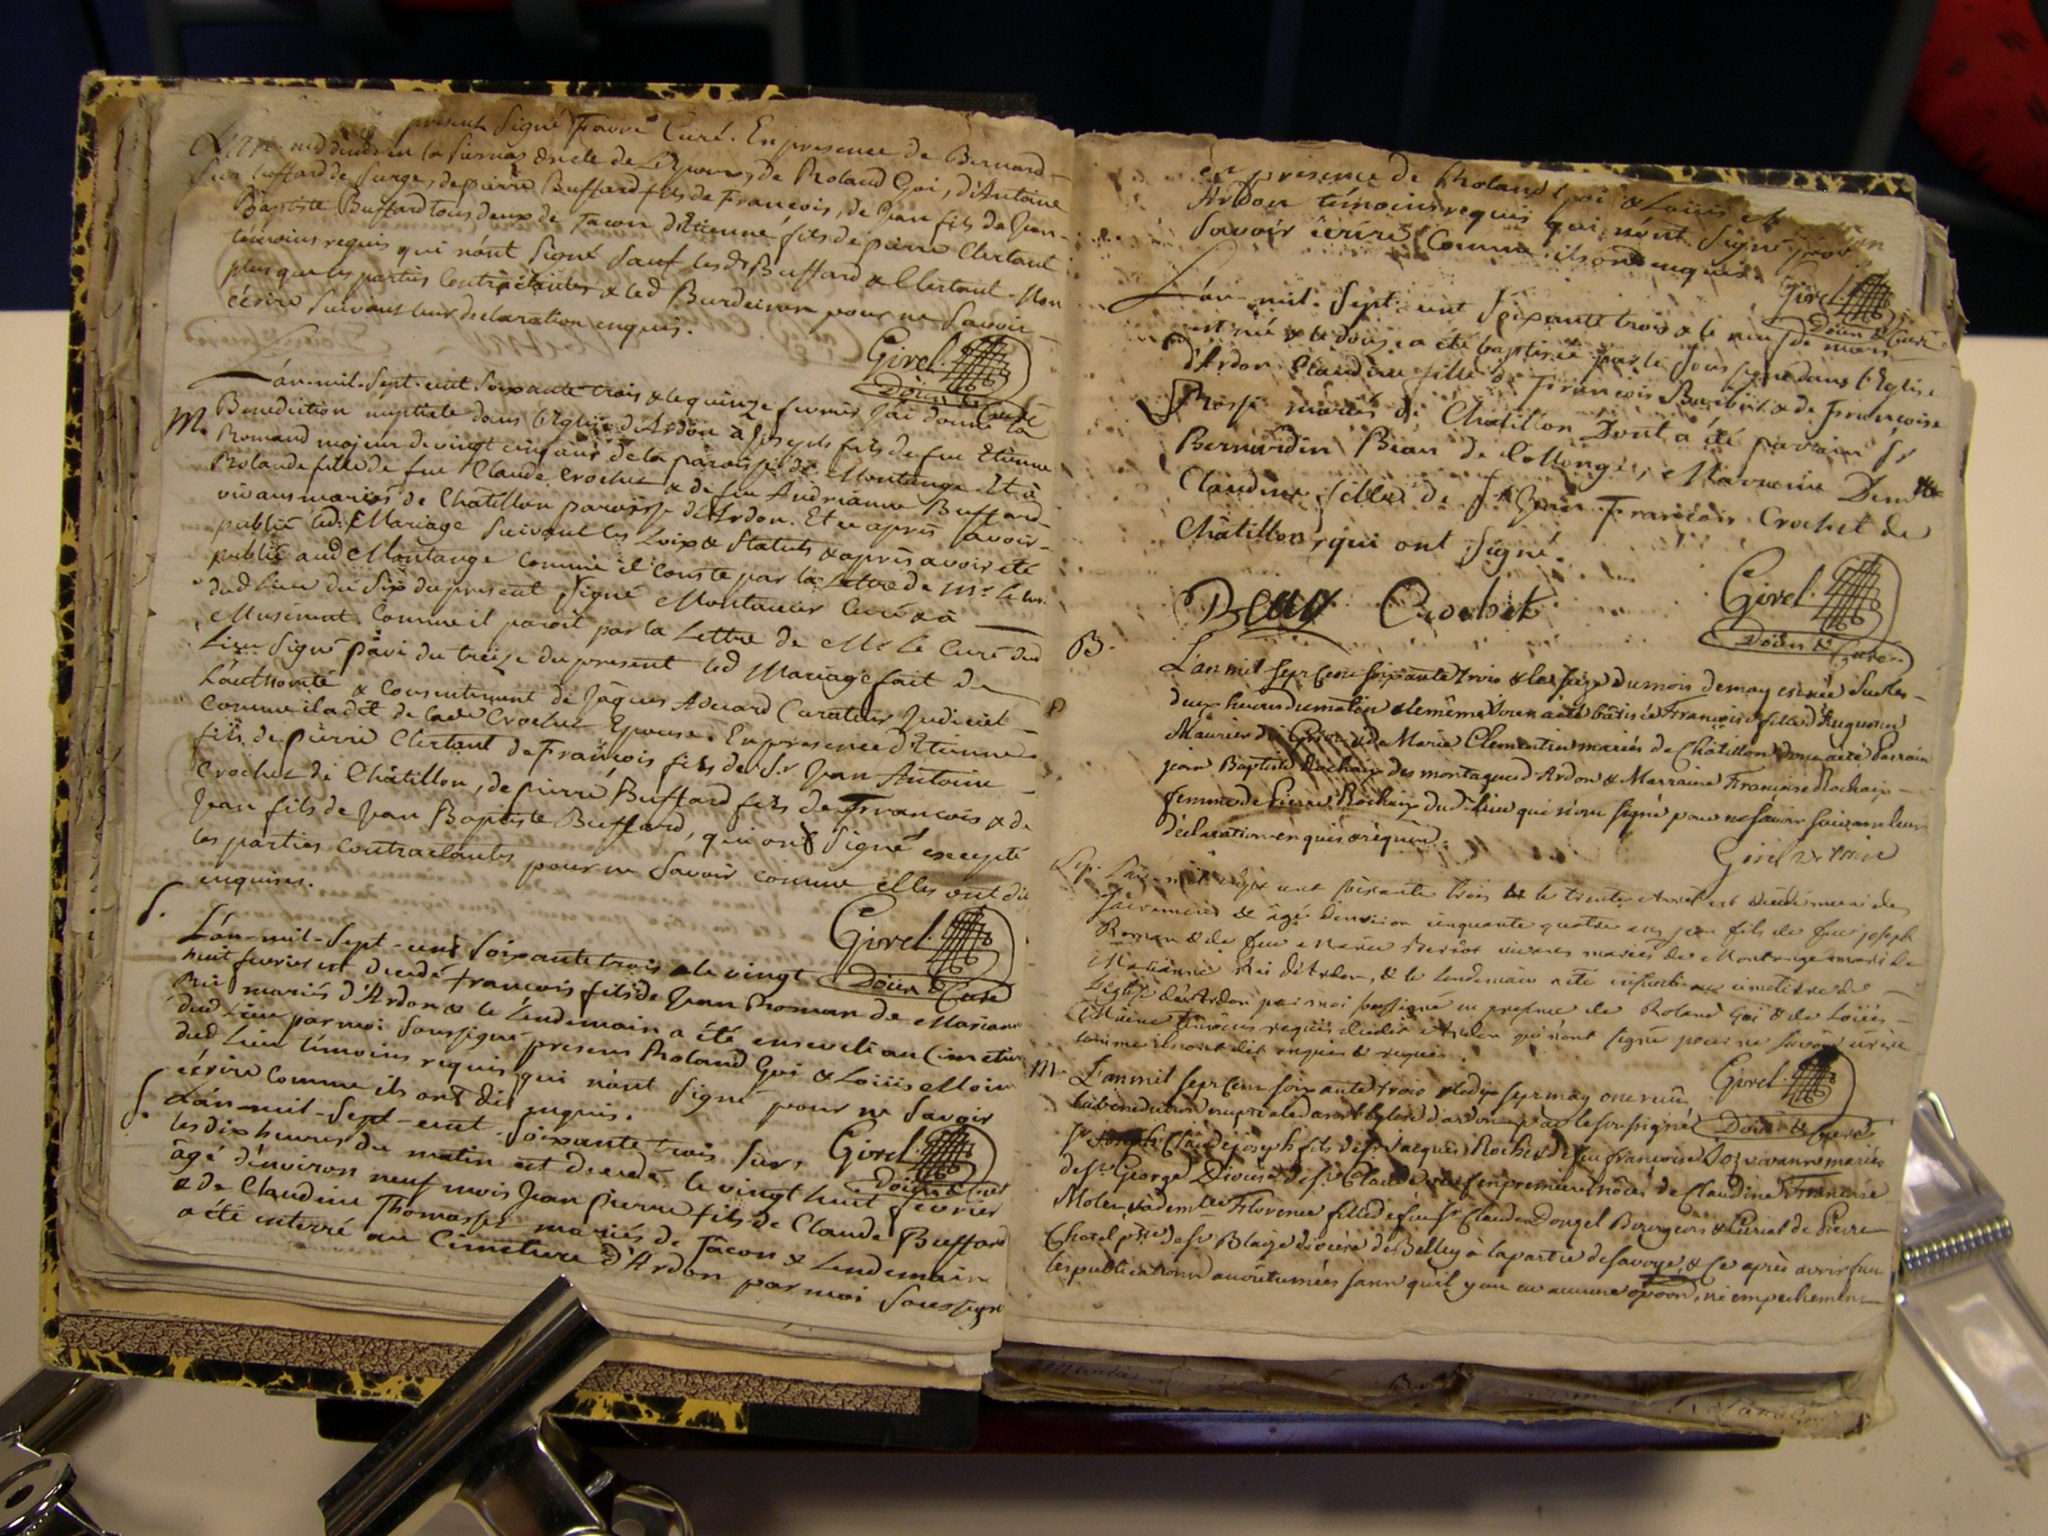 present Signé Favre Curé. En presence de Bernard
oncle de L'Epouse, de Roland Goi, d'Antoine
Buffard de Surge, de pierre Buffard fils de Francois, de Jean fils de Jean
Baptiste Buffard tous deux de Tacon d'Etienne fils de pierre Clertant
temoins requis qui n'ont Signé Sauf lesds Buffard & Clertant. Non
plus que les parties Contractantes & led pour ne Savoir
écrire Suivant leur declaration enquis.
Girel
Doien & Curé
L'an mil Sept cent Soixante trois & le quinze fevrier J'ai donné la
M. Benediction nuptiale dans l'Eglise d'Ardon à Joseph fils de feu Etienne
Romand majeur de vingt cinq ans de la paroisse de Montange Et à
Rolande fille de feu Claude Crochet & de feu Andrianne Buffard
vivans mariés de Chatillon paroisse d'Ardon. Et ce après avoir
publié led. Mariage Suivant les Loix & Statuts & après avoir été
publié aud Montange comme il conste par la Lettre de Mr le Cur.
dud Lieu du Six du present Signé Montanier Curé & à
Musinent Comme il paroit par la Lettre de Mr Le Curé dud
Lieu Signé Pavi du treize du present led Mariage fait de
L'authorité & Consentement de Jâques Curateur Judiciel
comme il a dit de lade Crochet Epouse. En presence d'Etienne
fils de pierre Clertant de François fils de Sr Jean Antoine
Crochet de Châtillon, de pierre Buffard fils de Francois & de
Jean fils de Jean Baptiste Buffard, qui ont Signé excepté
les parties contractantes pour ne Savoir comme elles ont dit
enquises.
Girel
Doien & Curé
S. L'an mil Sept cent Soixante trois & le vingt
huit fevrier est decedé Francois fils de Jean Roman de Marianne
Rei mariés d'Ardon & le Lendemain a été enseveli au Cimetiere
dud Lieu par moi Soussigné presens Roland Goi & Loüis Moine
dud Lieu témoins requis qui n'ont Signé pour ne Savoir
écrire comme ils ont dit enquis.
Girel
Doien & Curé
S. L'an mil Sept cent Soixante trois Sur
les dix heures du matin est decedé le vingt huit fevrier
âgé d'environ neuf mois Jean Pierre fils de Claude Buffard
& de Claudine Thomasset mariés de Tâcon & Lendemain
a été enterré au Cimetiere d'Ardon par moi Soussigné
en presence de Roland Goi & Loüis
Ardon témoins requis qui n'ont Signé pour
Savoir écrire Comme ils ont enquis.
Girel
Doien & Curé
L'an mil Sept cent Soixante trois & le neuf de mars
est née & le douze a été baptisée par le Sous signé dans l'Eglise
d'Ardon Claudine fille de François & de Françoise
Rosse mariés de Chatillon Dont a été parain Sr
Bernardin Bean de Collonges, Maraine Demlle
Claudine fille de Sr Jean François Crochet de
Châtillon, qui ont Signé.
Bean Crochet
Girel
Doien & Curé
B. L'an mil sept Cent soixante trois & le seize du mois de may est née sur les
deux heures du matin & le même Jour a été bâtisée Françoise fille d'Huguenin
Maurier & de Marie Clementin mariés de Châtillon dont a été Parrain
jean Baptiste Rochaix des montagnes d'Ardon & Marraine Françoise Rochaix
femme de Pierre Rochaix dud. lieu qui n'ont signé pour ne savoir suivant leur
déclaration enquis & requis.
Girel
Sep. L'an mil sept cent soixante trois & le trente Avril est decedé muni des
Sacremens & âgé d'environ cinquante quatre ans jean fils de feu joseph
Roman & de feu Marie vivans mariés de Montange mari de
Marianne Rei d'Ardon, & le lendemain a été inhumé au cimetière de
L'église d'Ardon par moi soussigné en presence de Roland Goi & de Loüis
Moine témoins requis dudit Ardon qui n'ont signé pour ne savoir écrire
comme ils ont dit enquis & requis.
Girel
Doien & Curé
M. L'an mil sept Cent soixante trois & le dix sept may ont reçu
la bénédiction nuptiale dans l'Eglise d'ardon par le soussigné
Sr Claude joseph fils de Sr Jacques Rochet & de feu françoise vivants mariés
de St George Diocèse de St Claude veuf en premieres nôces de Claudine Françoise
Molen, & demlle Florence fille de feu Sr Claude Dougel Bourgeois & Curial de Pierre
Chatel psse de St Blaize diocèse de Belley à la partie de Savoye, & Ce après avoir fait
les publications accoutumées sans qu'il y ait eu aucune oppon, ni empechement